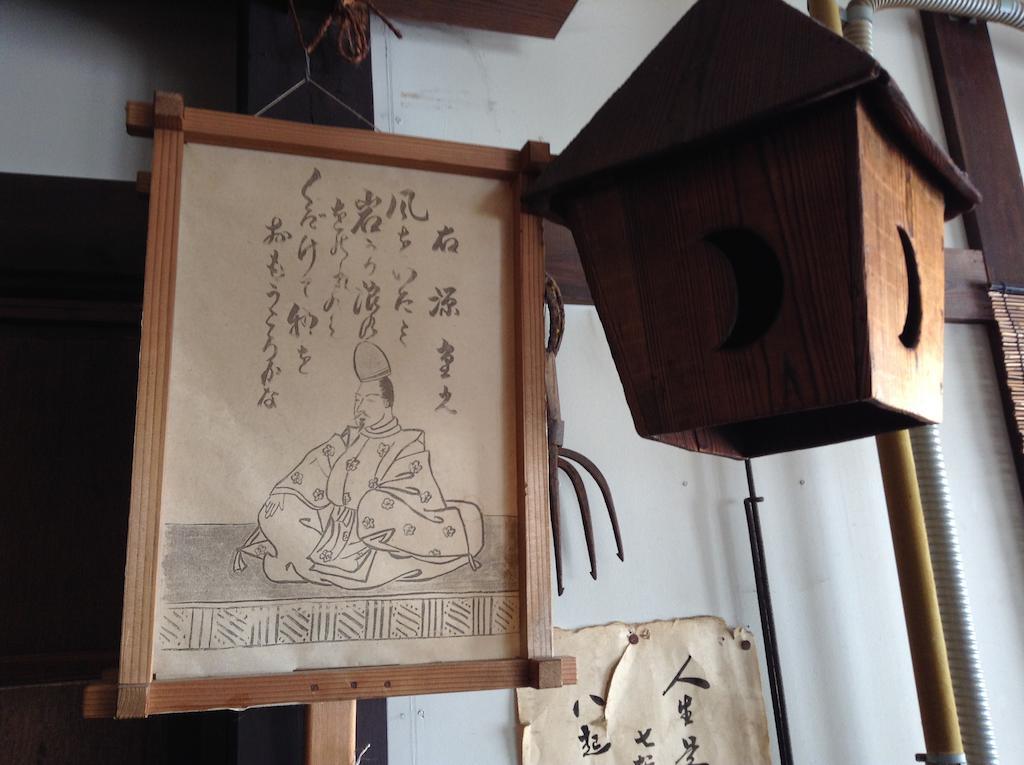 右 源重之
風をいたミ
岩うつ浪の
をのれのミ
くだけて物を
おもふころかな
人生是
七転
八起